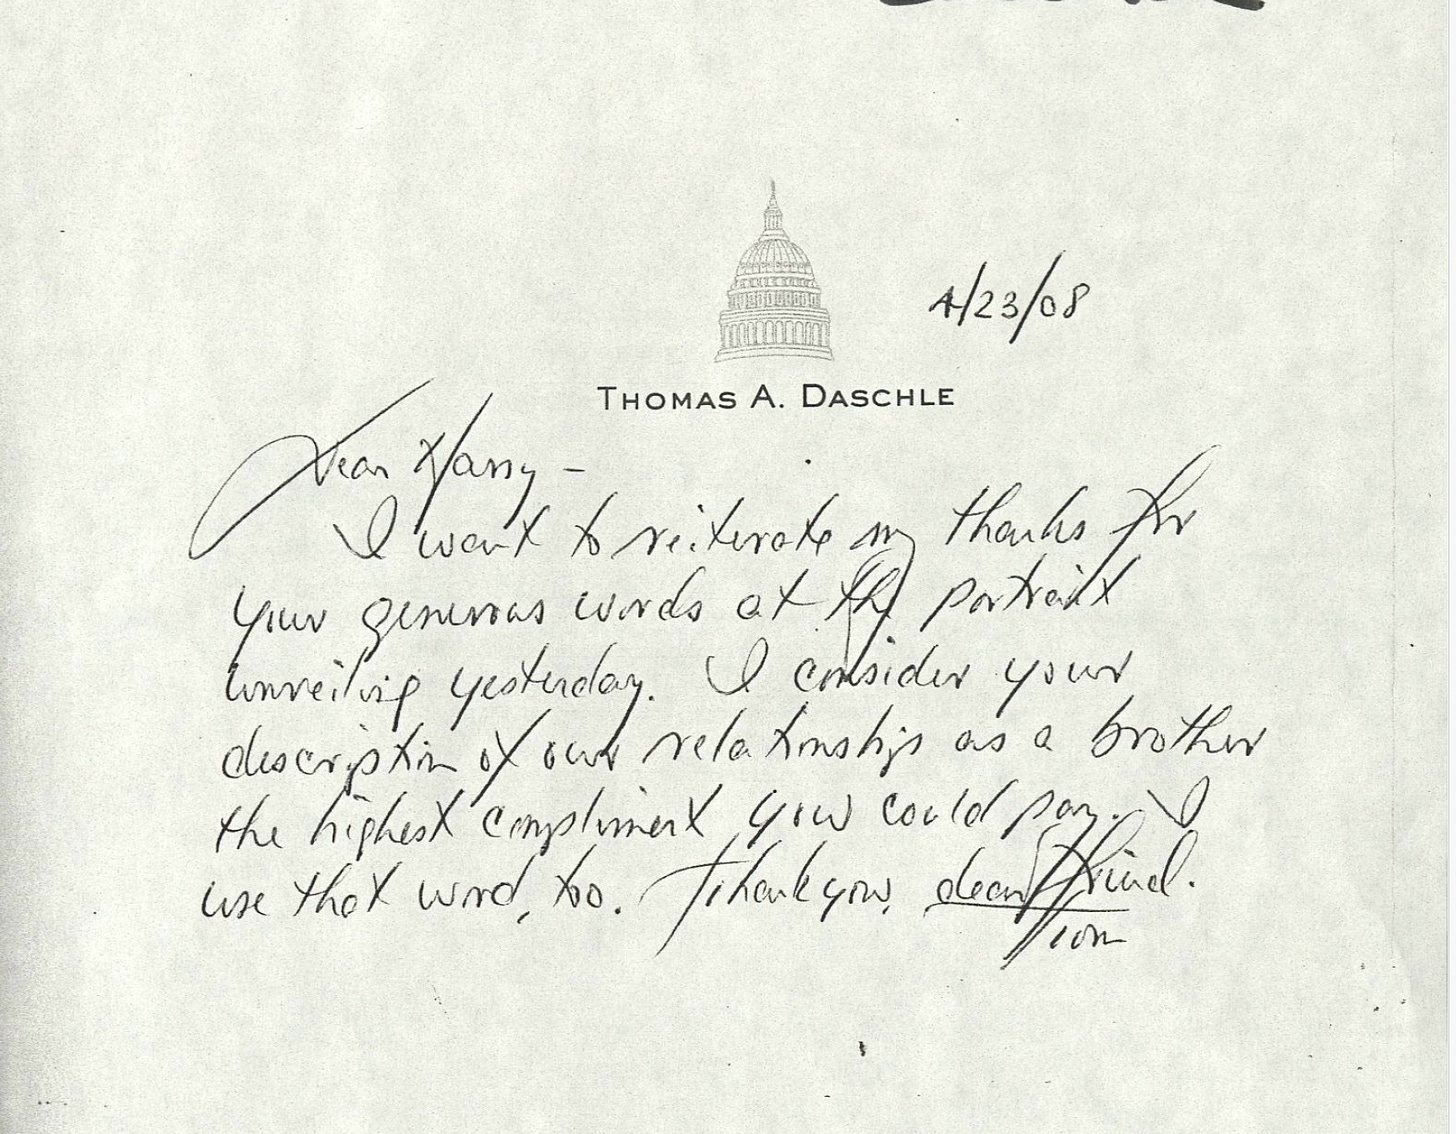 4/23/08
THOMAS A. DASCHLE
Dear Harry –
I want to reiterate my thanks for
your generous words at the portrait
unveiling yesterday. I consider your
description of our relationship as a brother
the highest compliment you could pay. I
use that word, too. Thank you, dear friend.
Tom